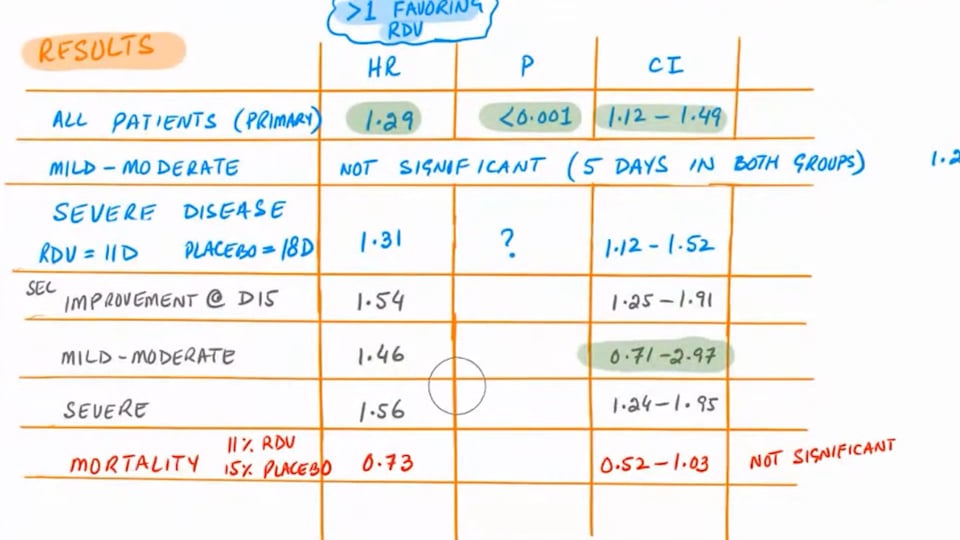 >1 FAVORING
RDV
RESULTS
HR P CI
ALL PATIENTS (PRIMARY) 1.29 <0.001 1.12 – 1.49
MILD – MODERATE NOT SIGNIFICANT (5 DAYS IN BOTH GROUPS) 1.2
SEVERE DISEASE
RDV = 11D PLACEBO = 18D 1.31 ? 1.12 – 1.52
SEC IMPROVEMENT @ D15 1.54 1.25 – 1.91
MILD – MODERATE 1.46 0.71 – 2.97
SEVERE 1.56 1.24 – 1.95
MORTALITY 11% RDV
15% PLACEBO 0.73 0.52 – 1.03 NOT SIGNIFICANT